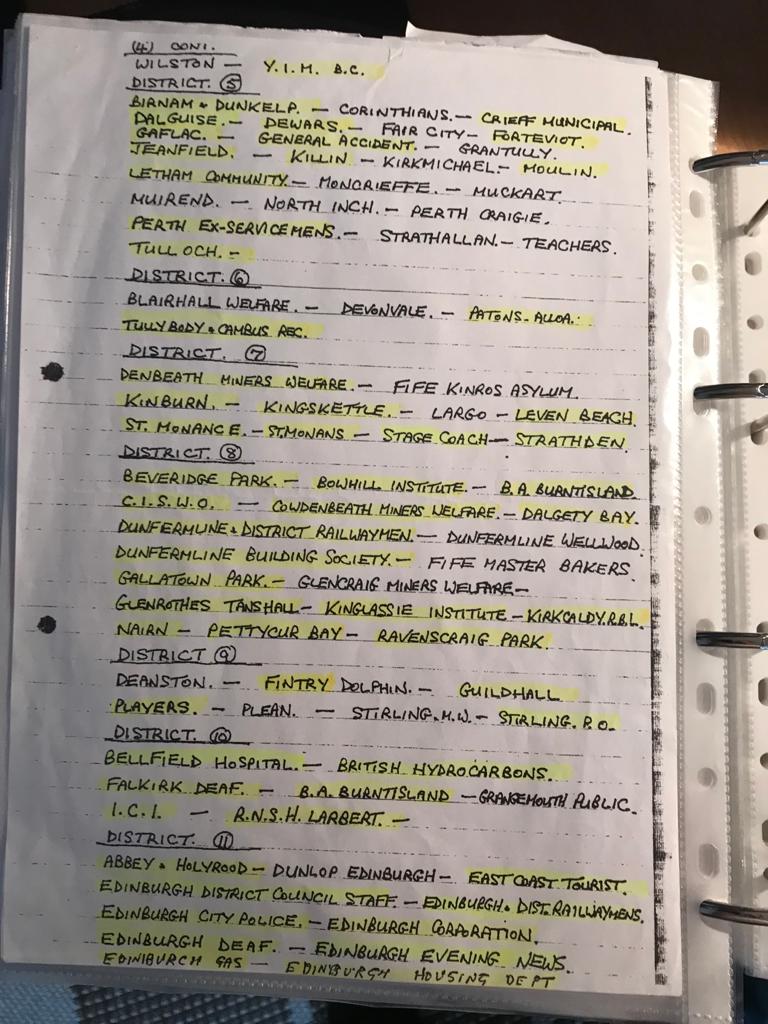 (4) CONT.
WILSTON — Y.I.M. B.C.
DISTRICT. (5)
BIRNAM & DUNKELD. — CORINTHIANS. — CRIEFF MUNICIPAL.
DALGUISE. — DEWARS. — FAIR CITY — FORTEVIOT.
GAFLAC. — GENERAL ACCIDENT. — GRANTULLY.
JEANFIELD. — KILLIN — KIRKMICHAEL. — MOULIN.
LETHAM COMMUNITY. — MONCRIEFFE. — MUCKART.
MUIREND. — NORTH INCH. — PERTH CRAIGIE.
PERTH EX-SERVICEMENS. — STRATHALLAN. — TEACHERS.
TULLOCH. —
DISTRICT. (6)
BLAIRHALL WELFARE. — DEVONVALE. — PATONS-ALLOA.
TULLYBODY & CAMBUS REC.
DISTRICT. (7)
DENBEATH MINERS WELFARE. — FIFE KINROS ASYLUM.
KINBURN. — KINGSKETTLE. — LARGO — LEVEN BEACH.
ST. MONANCE. — ST.MONANS — STAGE COACH — STRATHDEN.
DISTRICT. (8)
BEVERIDGE PARK. — BOWHILL INSTITUTE. — B.A. BURNTISLAND.
C.I.S.W.O. — COWDENBEATH MINERS WELFARE. — DALGETY BAY.
DUNFERMLINE & DISTRICT RAILWAYMEN. — DUNFERMLINE WELLWOOD.
DUNFERMLINE BUILDING SOCIETY. — FIFE MASTER BAKERS.
GALLATOWN PARK. — GLENCRAIG MINERS WELFARE —
GLENROTHES TANSHALL — KINGLASSIE INSTITUTE — KIRKCALDY.R.B.L.
NAIRN — PETTYCUR BAY — RAVENSCRAIG PARK.
DISTRICT (9)
DEANSTON. — FINTRY DOLPHIN. — GUILDHALL
PLAYERS. — PLEAN. — STIRLING.M.W. — STIRLING. P.O.
DISTRICT. (10)
BELLFIELD HOSPITAL. — BRITISH HYDROCARBONS.
FALKIRK DEAF. — B.A. BURNTISLAND — GRANGEMOUTH PUBLIC.
I.C.I. — R.N.S.H. LARBERT. —
DISTRICT. (11)
ABBEY & HOLYROOD — DUNLOP EDINBURGH — EAST COAST TOURIST.
EDINBURGH DISTRICT COUNCIL STAFF. — EDINBURGH & DIST. RAILWAYMENS.
EDINBURGH CITY POLICE. — EDINBURGH CORPORATION.
EDINBURGH DEAF. — EDINBURGH EVENING NEWS.
EDINBURGH GAS — EDINBURGH HOUSING DEPT